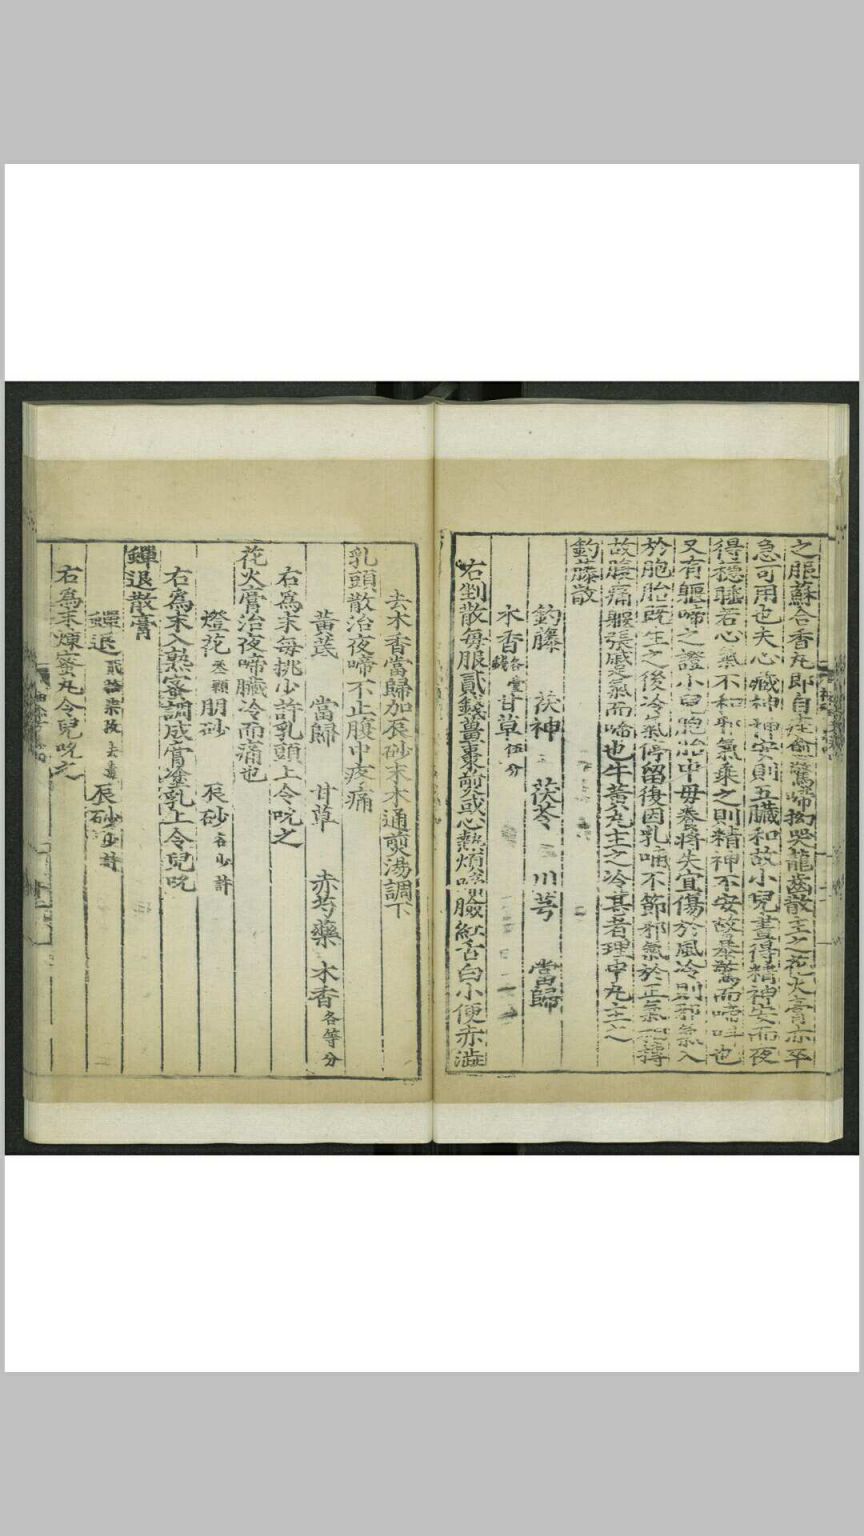 之脹蘇合香丸即自痊愈驚啼拗哭龍齒散主之花火膏亦卒
急可用也夫心藏神神安則五臟和故小兒晝得精神安而夜
得穩睡若心氣不和邪氣乘之則精神不安故暴驚而啼叫也
又有軀啼之證小兒胞胎中毋養將失宜傷於風冷則邪氣入
於胞胎既生之後冷氣停留復因乳哺不節邪氣於正氣相搏
故腹痛軀張蹙氣而啼也牛黃丸主之冷甚者理中丸主之
釣藤散
釣藤 茯神 茯苓 川芎 當歸
木香各壹錢 甘草伍分
右剉散每服貳錢薑棗煎或心熱煩啼臉紅舌白小便赤澁
去木香當歸加辰砂末木通煎湯調下
乳頭散治夜啼不止腹中疼痛
黃茋 當歸 甘草 赤芍藥 木香各等分
右為末每挑少許乳頭上令吮之
花火膏治夜啼臟冷而痛也
燈花叁顆 朋砂 辰砂各少許
右為末入熟蜜調成膏塗乳上令兒吮
蟬退散膏
蟬退貳拾柒枚去毒 辰砂少許
右為末煉蜜丸令兒吮之